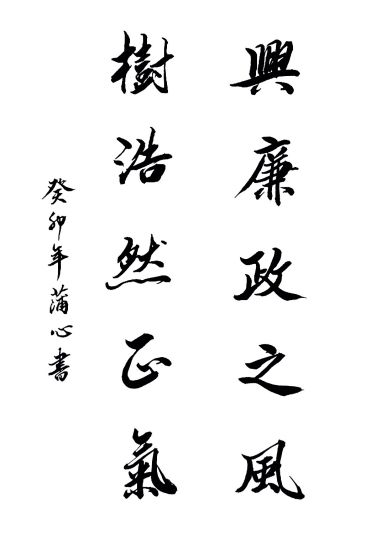 興廉政之風
樹浩然正氣
癸卯年蒲心書